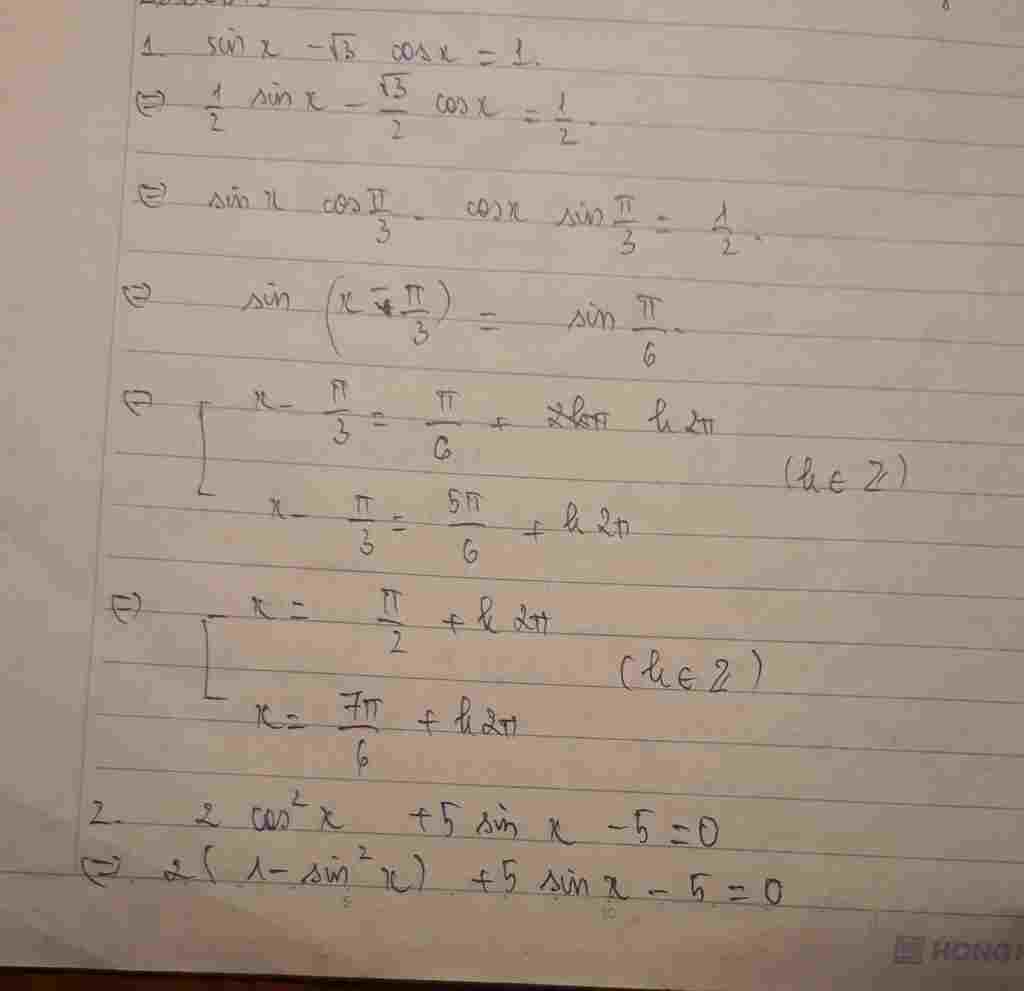 1. sin x - √3 cos x = 1.
⇔ 1/2 sin x - √3/2 cos x = 1/2.
⇔ sin x cos π/3 - cos x sin π/3 = 1/2.
⇔ sin (x - π/3) = sin π/6.
⇔ [ x - π/3 = π/6 + k2π
(k ∈ Z)
x - π/3 = 5π/6 + k2π
⇔ [ x = π/2 + k2π
(k ∈ Z)
x = 7π/6 + k2π
2. 2 cos²x + 5 sin x - 5 = 0
⇔ 2(1 - sin²x) + 5 sin x - 5 = 0
5 10
HONG